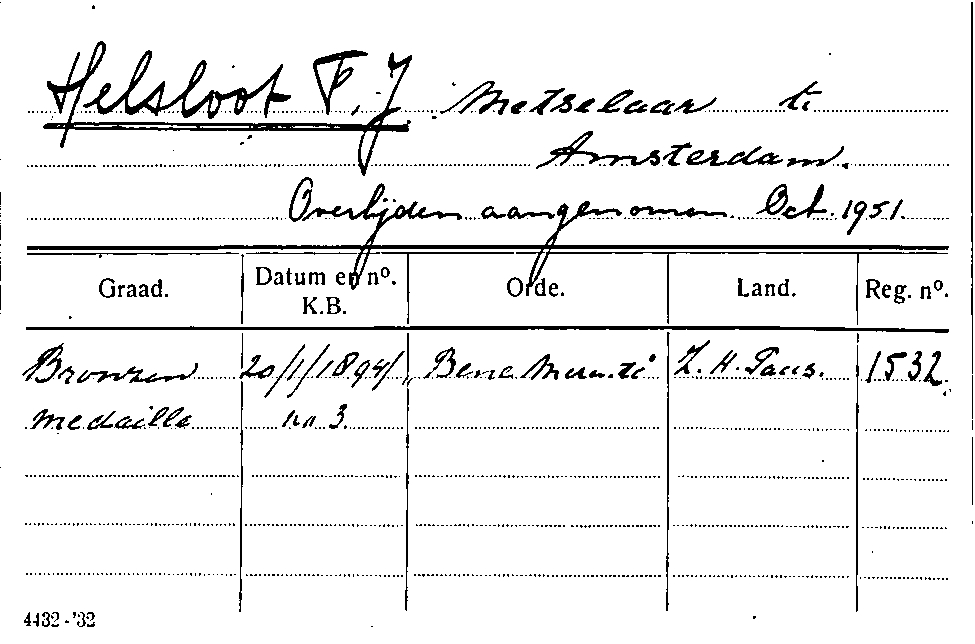 Helsloot F. J. Metselaar te
Amsterdam.
Overlijden aangenomen Oct. 1951.
Graad. Datum en nº. K.B. Orde. Land. Reg. nº.
Bronzen 20/1/1894 "Bene Merenti" Z. H. Paus. 1532
medaille no 3.
4432-'32